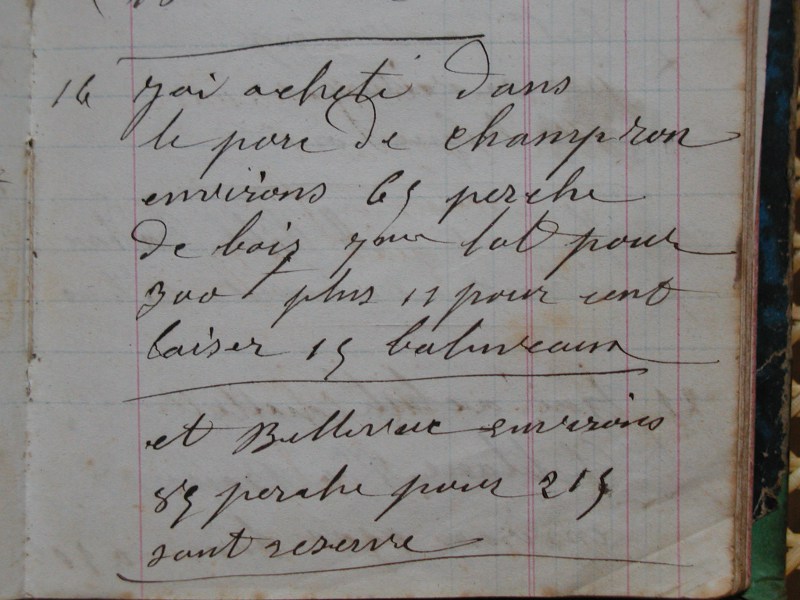 16 jai acheté dans
le porc de champron
environs 65 perche
de bois 7me lot pour
300 f plus 11 pour cent
laiser 15 baliveaux
et Bellevue environs
85 perche pour 215
sant reserve